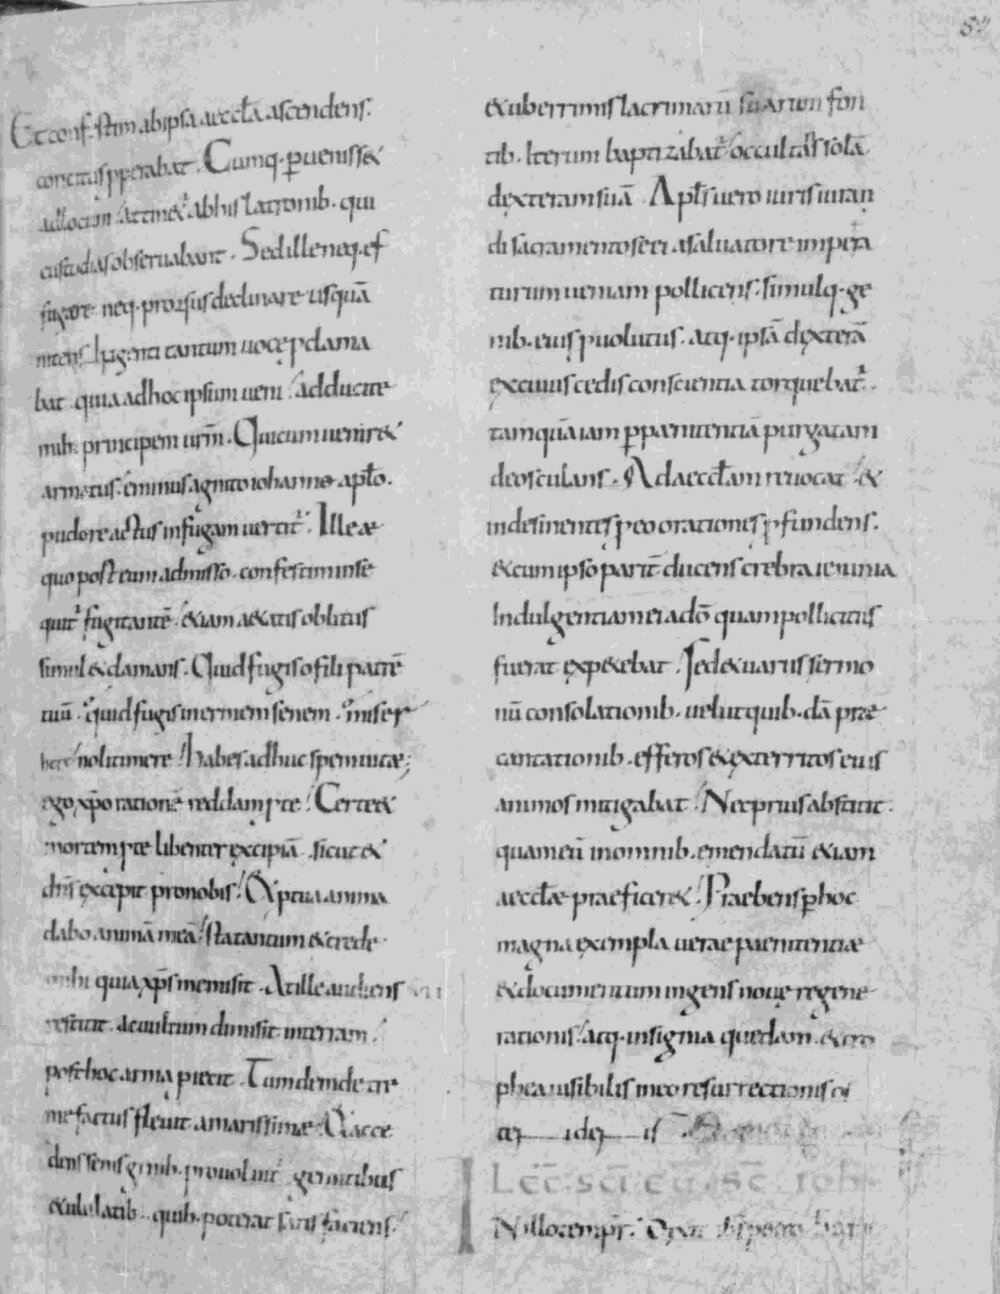 Et conf stim ab ipsa aeccła ascendens.
concitus pperabat. Cumq· p̱uenisset
ad locum attinet' ab his latronib· qui
custodias obseruabant. Sed ille neq· ef
fugere neq· prorsus declinare usquā
nitens lugenti tantum uoce p̱clama
bat quia ad hoc ipsum ueni adducite
mihi principem urm̄. Qui cum ueniret
armatus· eminus agnito iohanne apło.
pudore actus in fugam uertit'. Ille æ
quo post eum admisso· confestim inse
quit' fugitantē· etiam aetatis oblitus
simul et clamans. Quid fugis o fili patrē
tuū· quid fugis inermem senem· miser
here noli timere habes adhuc spem uitæ;
ego xp̄o rationē reddam p te. Certe et
mortem p te libenter excipiā· sicut et
dn̄s excepit pro nobis. Et p tua anima
dabo animā meā sta tantum et crede
mihi quia xp̄s me misit. At ille audiens
restitit· ac uultum dimisit in terram.
post hoc arma piecit. Tum deinde tre
me factus fleuit amarissimæ. Et acce
dens senis genib· prouoluit' gemitibus
et ululatib· quib· poterat satis faciens.
et uberrimis lacrimarū suarum fon
tib· Iterum baptizabat' occultās solā
dexteram suā. Apłs uero iuris iuran
di sacramento se ei a saluatore impetra
turum ueniam pollicens· simulq· ge
nib· eius p̱uolutus· atq· ipsā dexterā
ex cuius cedis conscientia torquebat'.
tamquā iam p̱ paenitentiā purgatam
deosculans. Ad aecclam reuocat et
indesinentes p eo orationes p̱fundens.
et cum ipso parit̄ ducens crebra ieiunia
Indulgentiam ei a dō quam pollicitus
fuerat expetebat. Sed et uariis sermo
nū consolationib· uelut quib· dā præ
cantationib· efferos et exterritos eius
animos mitigabat. Nec prius abstitit.
quam eū in omnib· emendatū etiam
aeccłæ praeficeret. Praebens p̱ hoc
magna exempla uerae paenitentiæ
et documentum ingens nouę regene
rationis atq· insignia quedam· et tro
phea uisibilis in eo resurrectionis os
Lec̄· sc̄i eu· sc̄ ioh·
In illo tempr̄·